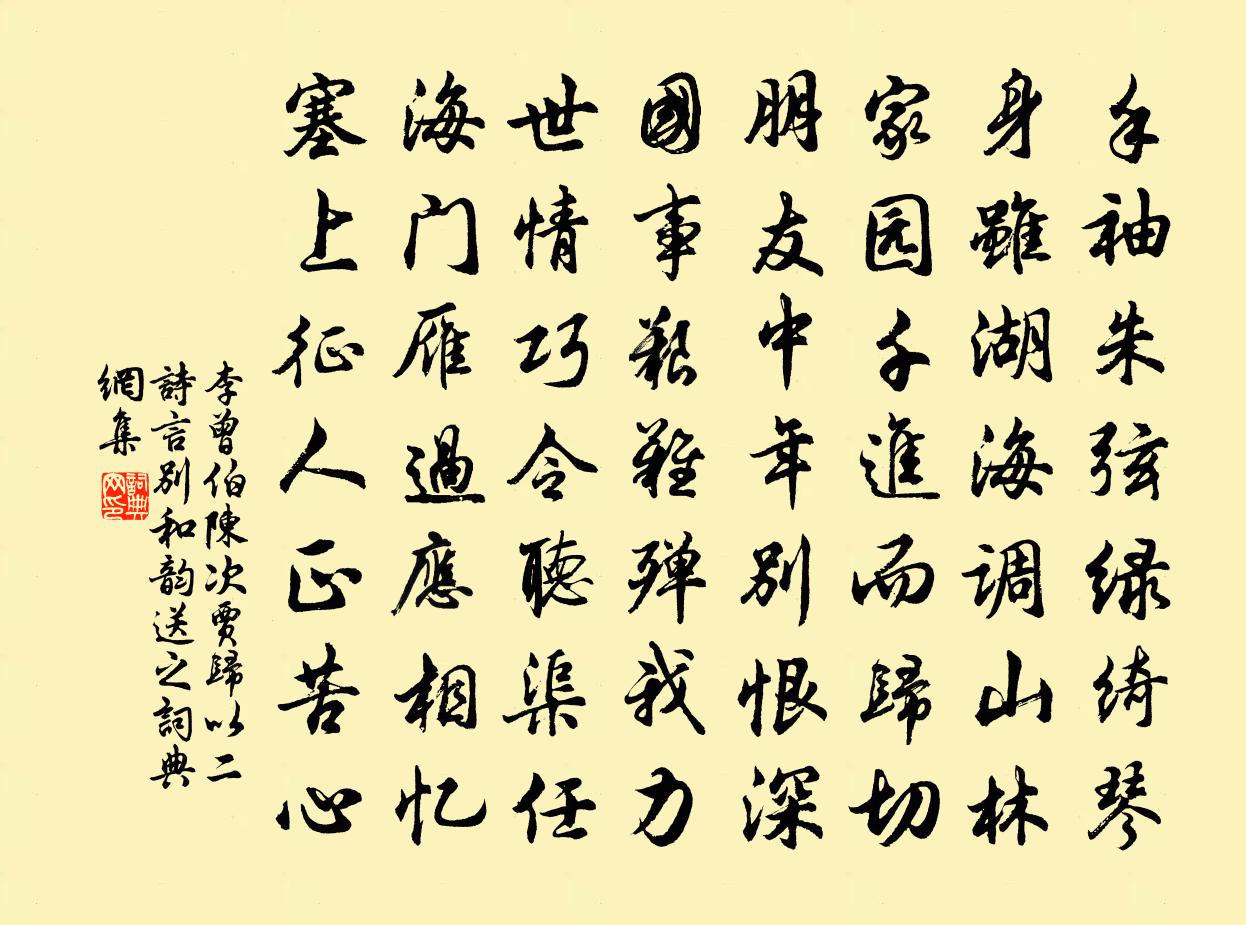 手袖朱弦绿绮琴
身雖湖海调山林
家园千進而歸切
朋友中年别恨深
國事艱難殫我力
世情巧令聽渠任
海门雁過應相忆
塞上征人正苦心
李曾伯陳次賈歸以二
詩言别和韵送之詞典
網集
詞典网印